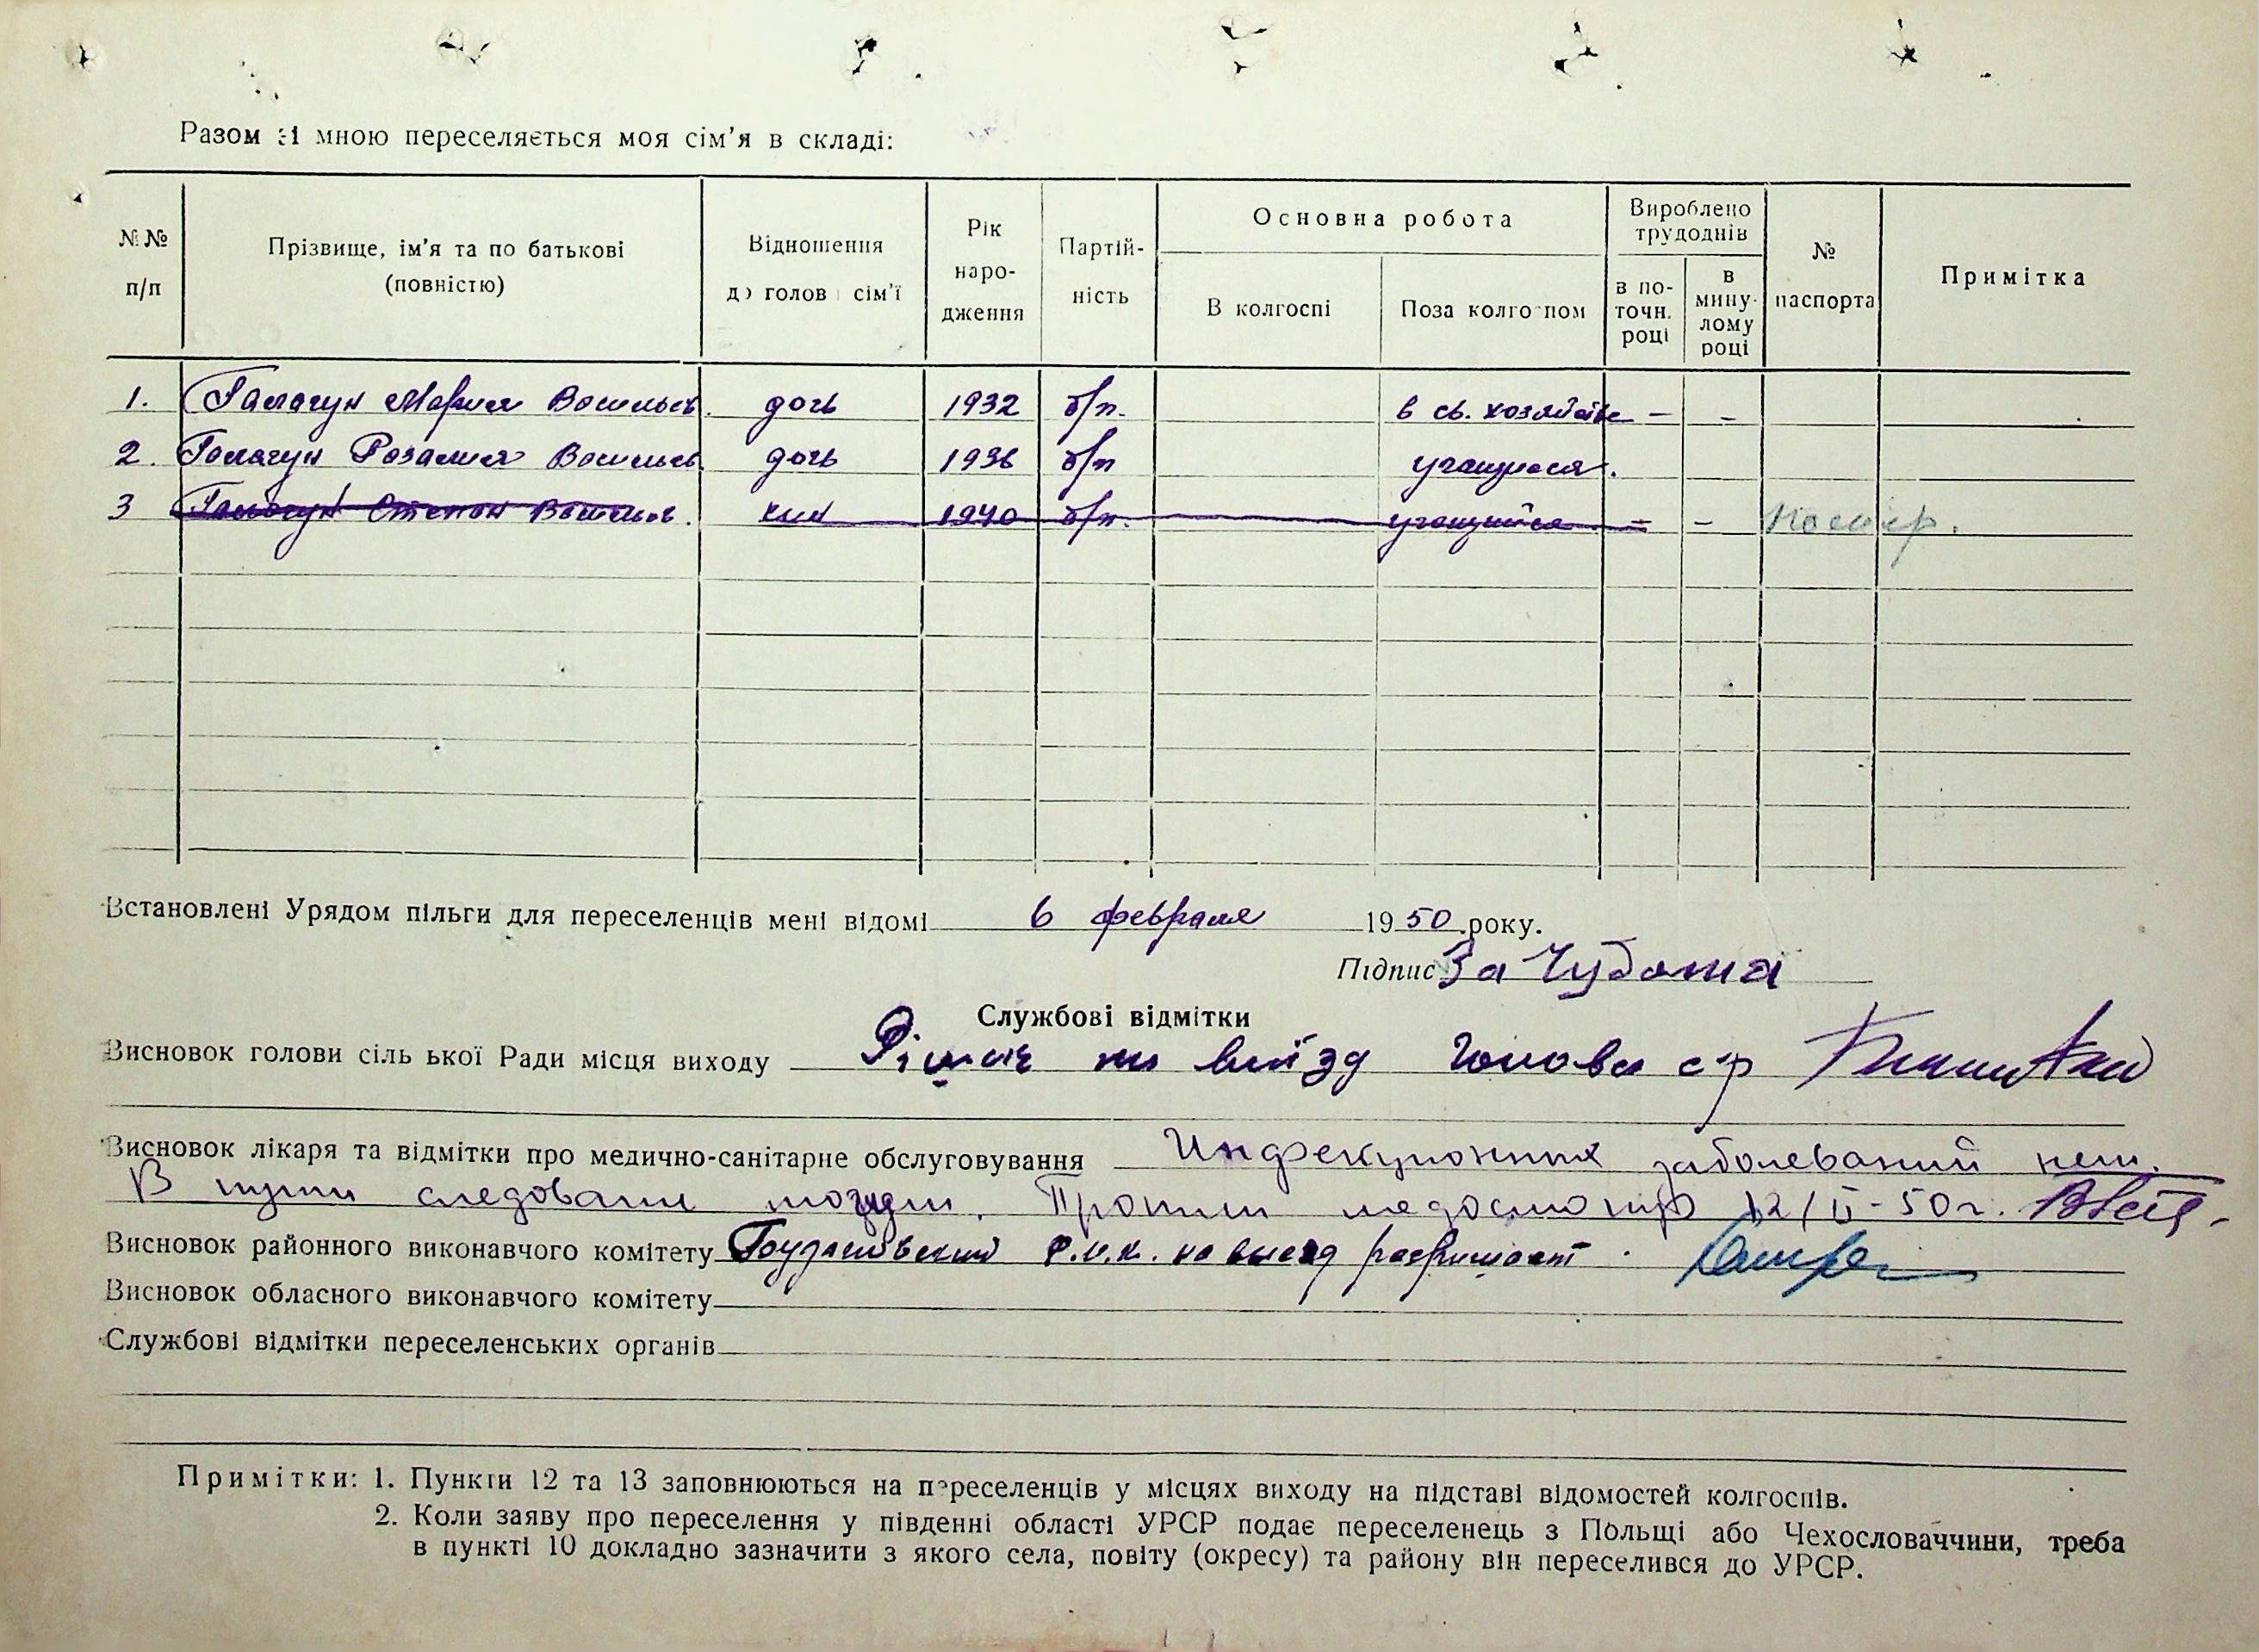 Разом зі мною переселяється моя сім'я в складі:
№№ п/п
Прізвище, ім'я та по батькові (повністю)
Відношення до голови сім'ї
Рік народження
Партій-ність
Основна робота
В колгоспі
Поза колгоспом
Вироблено трудоднів
в по-точн. році
в мину-лому році
№ паспорта
Примітка
1. Галагун Мария Васильев. дочь 1932 б/п. в св. хозяйстве - -
2. Галагун Розалия Васильев. дочь 1936 б/п учащаяся.
3 Галагун Степан Васильев. сын 1940 б/п. учащийся - -
Встановлені Урядом пільги для переселенців мені відомі 6 февраля 1950 року.
Підпис За
Службові відмітки
Висновок голови сільської Ради місця виходу на виїзд Голова с/р
Висновок лікаря та відмітки про медично-санітарне обслуговування Инфекционных заболеваний нет.
В пути следовати могут. Прошли медосмотр 12/II-50г.
Висновок районного виконавчого комітету Р.И.К. на выезд разришает.
Висновок обласного виконавчого комітету
Службові відмітки переселенських органів
Примітки: 1. Пункти 12 та 13 заповнюються на переселенців у місцях виходу на підставі відомостей колгоспів.
2. Коли заяву про переселення у південні області УРСР подає переселенець з Польщі або Чехословаччини, треба
в пункті 10 докладно зазначити з якого села, повіту (окресу) та району він переселився до УРСР.